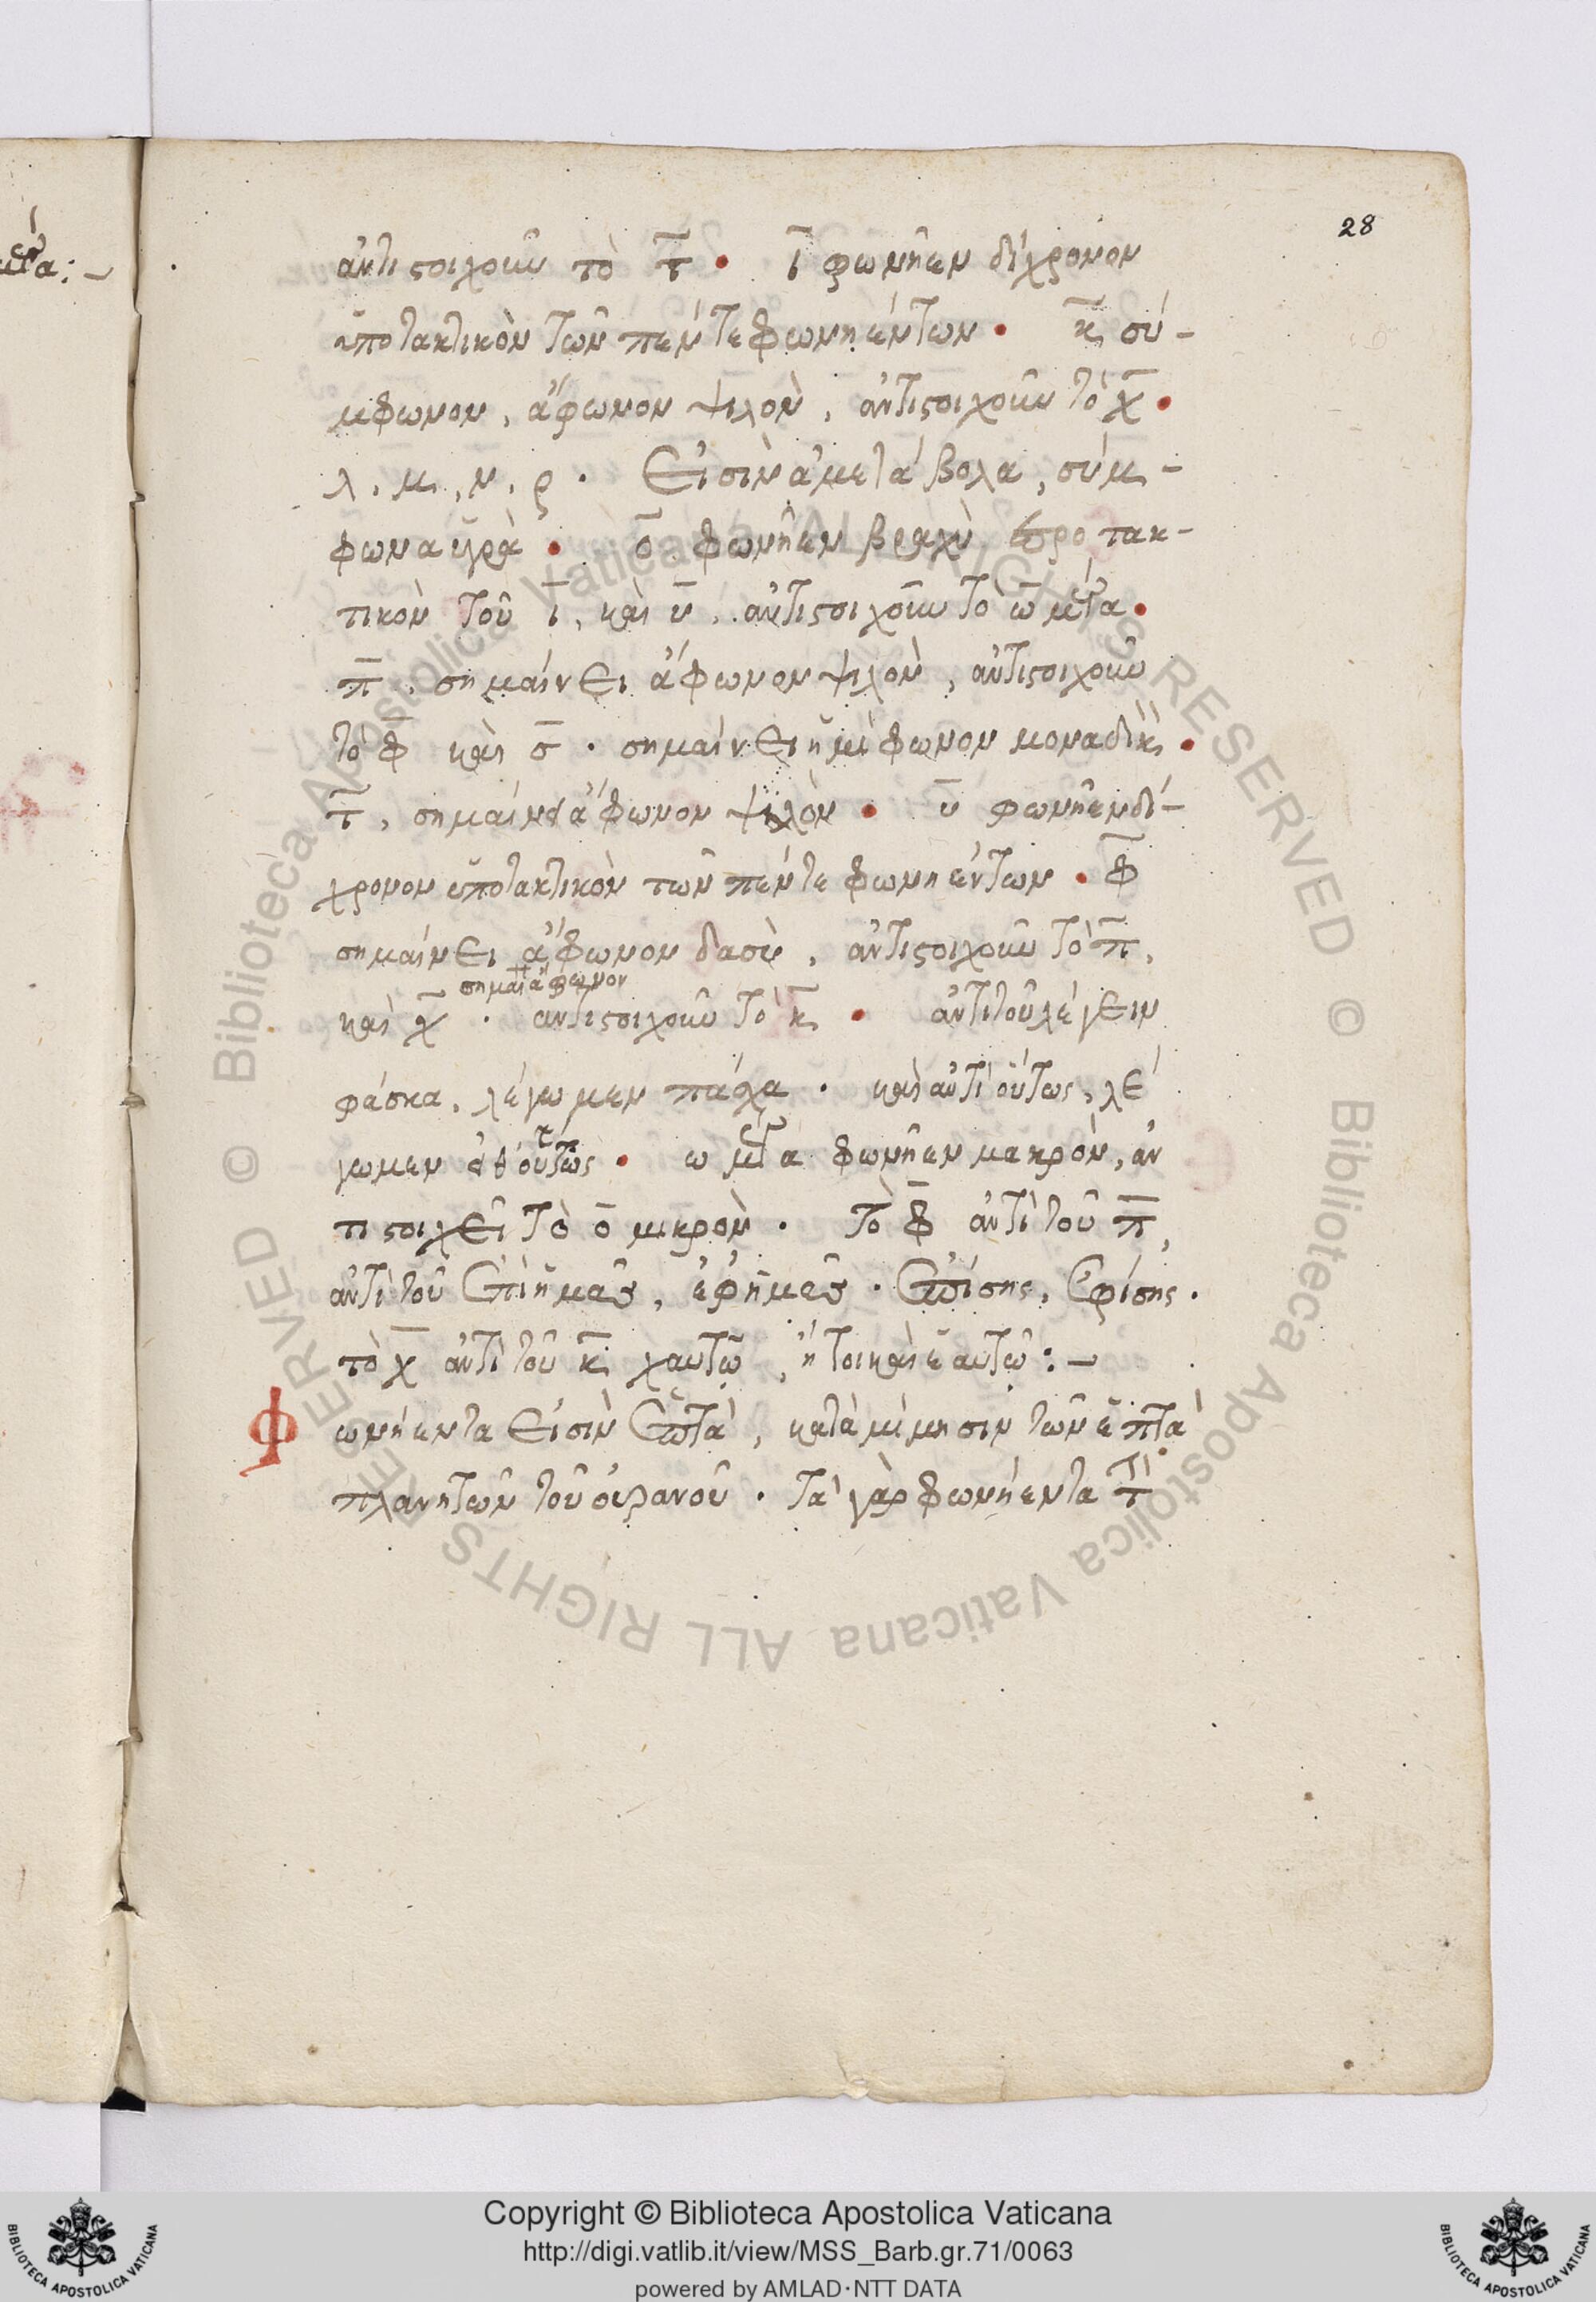 28
ἀντιστοιχοῦν τὸ τ̅ • ι̅ φωνῆεν δίχρονον
ὑποτακτικὸν τῶν πέντε φωνηέντων • κ̅ σύ-
μφωνον, ἄφωνον ψιλὸν, ἀντιστοιχοῦν τὸ χ̅ •
λ, μ, ν, ρ · Εἰσὶν ἀμετάβολα, σύμ-
φωνα ὑγρὰ • ο̅ φωνῆεν βραχὺ προτακ-
τικὸν τοῦ ι̅, καὶ υ̅, ἀντιστοιχοῦν τὸ ω̅ μέγα •
π̅, σημαίνει ἄφωνον ψιλὸν, ἀντιστοιχοῦν
τὸ φ̅ καὶ σ̅ · σημαίνει ἡμίφωνον μοναδικ •
τ̅, σημαίνει ἄφωνον ψιλὸν • υ̅ φωνῆεν δί-
χρονον ὑποτακτικὸν τῶν πέντε φωνηέντων • φ̅
σημαίνει ἄφωνον δασὺ, ἀντιστοιχοῦν τὸ π̅,
σημαί ἄφωνον
καὶ χ̅ · ἀντιστοιχοῦν τὸ κ̅ • ἀντὶ τοῦ λέγειν
φάσκα, λέγωμεν πάσχα · καὶ ἀντὶ οὕτως, λέ
γωμεν οὕτως • ω μέγα φωνῆεν μακρὸν, ἀν
τιστοιχεῖ τὸ ο̅ μικρὸν · τὸ φ̅ ἀντὶ τοῦ π̅,
ἀντὶ τοῦ ἐπὶ ἡμᾶς, ἐφἡμᾶς · ἐπίσης, ἐφίσης ·
τὸ χ̅ ἀντὶ τοῦ κ̅ χαυτῷ, ἤτοι καὶ ἑαυτῷ : –
Φωνήεντα εἰσὶν ἑπτὰ, κατὰ μίμησιν τῶν ἑπτὰ
πλανητῶν τοῦ οὐρανοῦ · τὰ γὰρ φωνήεντα
Copyright © Biblioteca Apostolica Vaticana
http://digi.vatlib.it/view/MSS_Barb.gr.71/0063
powered by AMLAD·NTT DATA